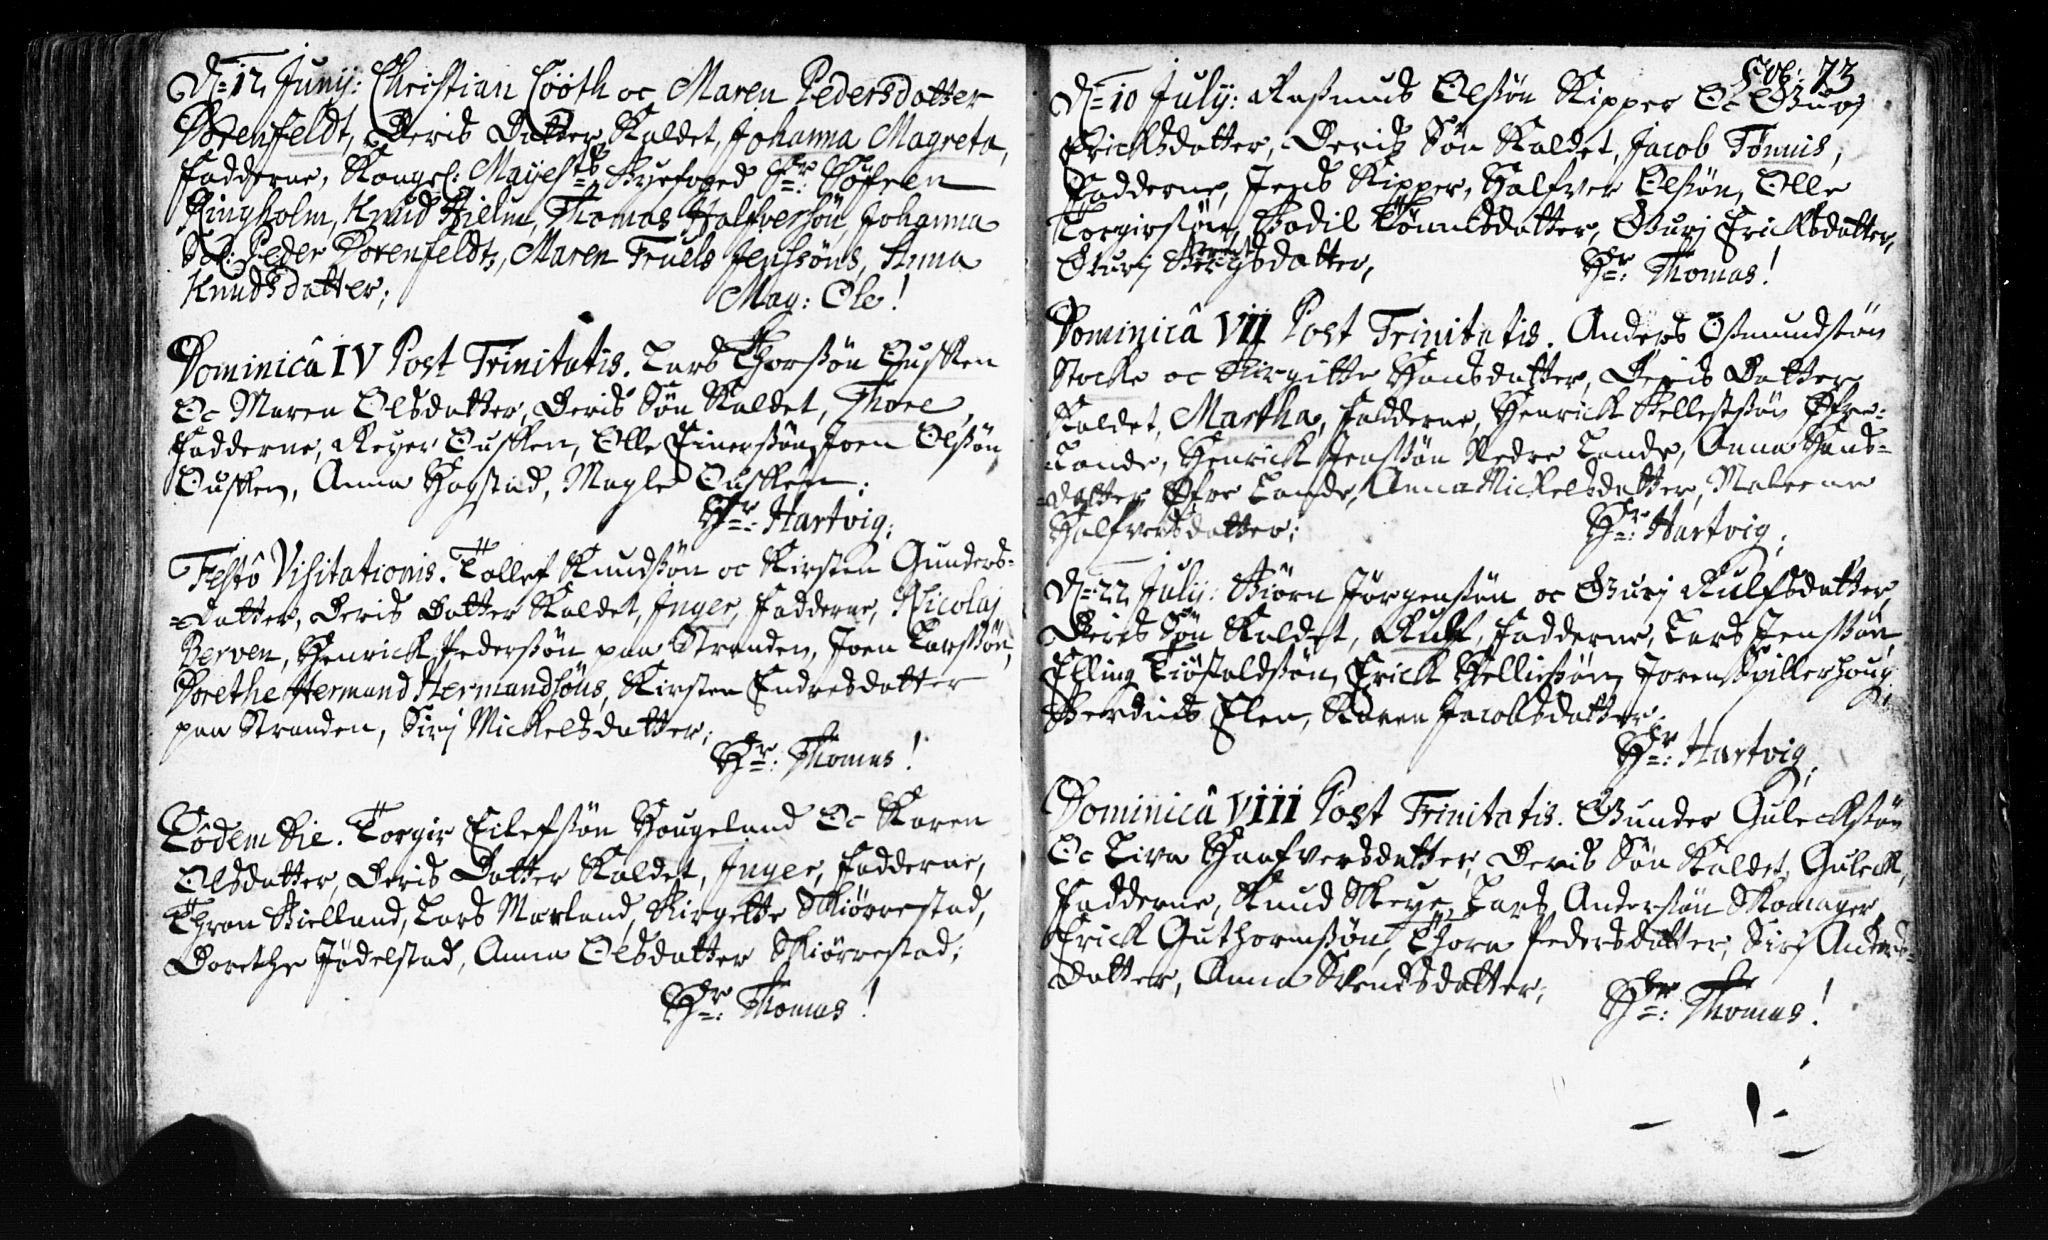 D. 12 Junij: Christian Lööth oc Maren Pedersdatter
Dorenfeldt, Deris Datter Kaldet, Johanna Magreta,
Fadderne, Kongel: Mayests Byefoged Sr:
Ringholm, Knud Hielm, Thomas Halfversön, Johanna
Sl: Peder Dorenfeldts, Maren Truels Jenssöns, Anna
Knudsdatter;
Mag: Ole!
Dominicâ IV Post Trinitatis. Lars Thorssön Ousken
Oc Maren Olsdatter, Deris Sön Kaldet, Thore,
Fadderne, Reyer Ousken, Olle Einerssön, Joen Olssön
Ousken, Anna Hogstad, Magle Ousken;
Hr: Hartvig;
Festô Visitationis. Tollef Knudssön oc Kirsten Gunders-
-datter, Deris Datter Kaldet, Inger, Fadderne, Nicolaj
Berven, Henrick Pederssön paa Stranden, Joen Larssön,
Dorethe Hermand Hermandsöns, Kirsten Endresdatter
paa Stranden, Sirj Mickelsdatter;
Hr: Thomas!
Eôdem Die. Torgir Eilefssön Hougeland Oc Karen
Olsdatter, Deris Datter Kaldet, Inger, Fadderne,
Thron Bielland, Lars Marland, Birgette Skiörrestad,
Dorethe Jödelstad, Anna Olsdatter Skiörrestad;
Hr: Thomas!
Fol: 73
D. 10 Julij: Rasmus Olssön Skipper Oc Gurj
Ericksdatter, Deris Sön Kaldet, Jacob Tönnis,
Fadderne, Jens Skipper, Halfver Olssön, Olle
Torgirssön, Bodil Tönnisdatter, Gurj Ericksdatter,
Gurj
Hr: Thomas!
Dominicâ VII Post Trinitatis. Anders Osmundssön
Stocke oc Birgitte Hansdatter, Deris Datter
Kaldet, Martha, Fadderne, Henrick Kellestssön Öfre-
-Lande, Henrick Jenssön Nedre Lande, Anna Hans-
-datter Öfre Lande, Anna Mickelsdatter, Maleene
Halfversdatter;
Hr: Hartvig;
D. 22 Julij: Biörn Jörgenssön oc Gurj Rulfsdatter,
Deris Sön Kaldet, Rulf, Fadderne, Lars Jenssön,
Elling Tiöstoldssön, Erick Kellissön, Joren Spillerhoug
Elen, Karen Jacobsdatter;
Hr: Hartvig;
Dominicâ VIII Post Trinitatis. Gunder Guleckssön
Oc Liva Haafversdatter, Deris Sön Kaldet, Guleck,
Fadderne, Knud Skeye, Lars Anderssön Skomager,
Erick Guthormssön, Thora Pedersdatter, Sirj Anders-
datter, Anna Svendsdatter;
Hr: Thomas!